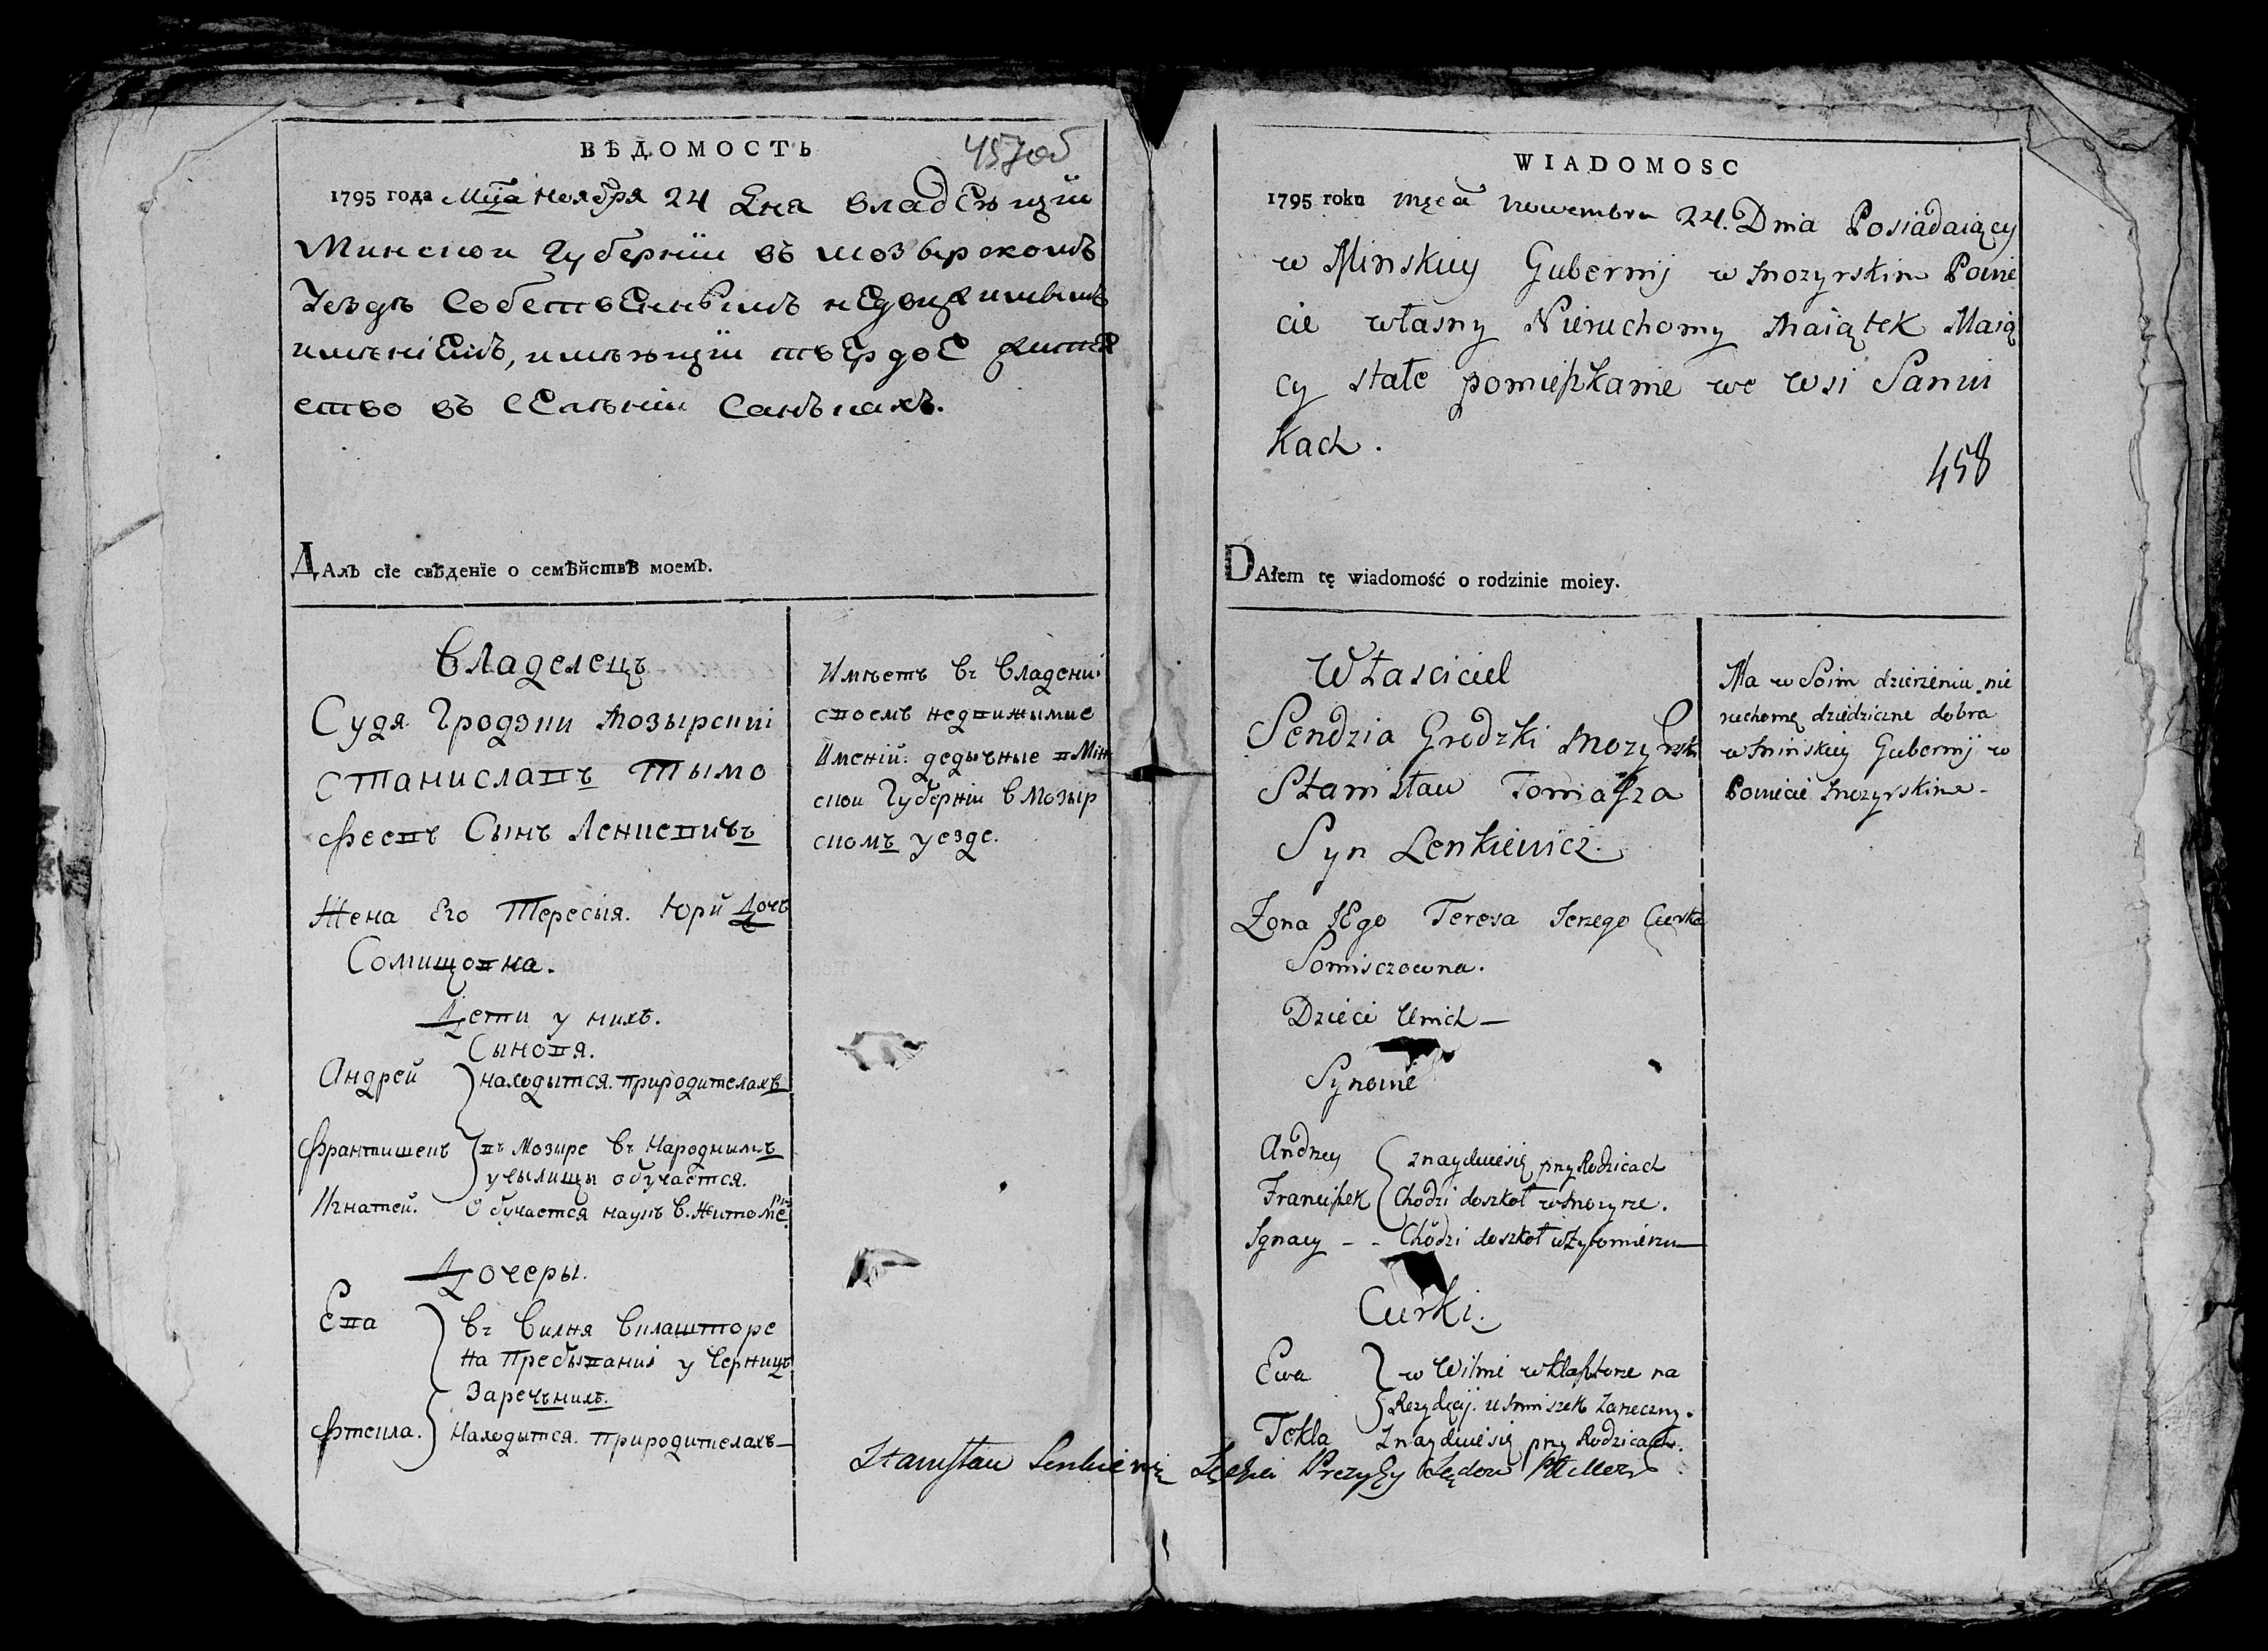 ВѢДОМОСТЬ
457об
1795 года Мца Ноября 24 Дня владѣющiи
Минскои Губернiи въ мозырскомъ
Уездѣ Собственнымъ недвижимымъ
имѣнiемъ, имѣющiи твердое жите
ство въ селѣнiи Санъкахъ.
Далъ сїе свѣденїе о семѣйствѣ моемъ.
Владелецъ
Судя Гродзки Мозырскиi
Станиславъ Тымо
феевъ Сынъ Ленкевичъ
Жена Его Тересыя. Юрй Дочь
Сомищовна.
Дети у нихъ.
Сыновя.
Андрей находытся. природителахъ
Франтишекъ въ Мозыре Въ Народнымъ
учылищы обучается.
Игнатей. Обучается наукъ в. Житомере
Дочеры.
Ева Въ Вилня Вклашторе
на Пребыванiи у Черницъ
Заречъныхъ.
Фтекла. Находытся. природителахъ
Имѣетъ Въ Владенiи
своемъ недвижимые
Именiй: дедычные в Мiн
скои Губернiи в Мозыр
скомъ уезде.
WIADOMOSC
1795 roku Męca Nowembra 24. Dnia Posiadaiący
w Minskiey Gubernij w Mozyrskim Powie
cie własny Nieruchomy Maiątek Maią
cy stałe pomieszkanie we Wsi Sanni
kach.
458
DAłem tę wiadomość o rodzinie moiey.
Własciciel
Sendzia Grodzki Mozyrski
Stanisław Tomasza
Syn Lenkiewicz.
Zona JEgo Teresa Jerzego Curka
Somisczowna.
Dzieci Unich
Synowie
Andrzey znayduiesię przy Rodzicach
Franciszek Chodzi doszkoł wMozyrze.
Ignacy - - Chodzi doszkoł wZytomierzu
Curki.
Ewa w Wilnie wKlasztorze na
Rezydęcij. uMniszek Zarzeczny.
Tekla Znayduiesię przy Rodzicach.
Ma w Soim dzierżeniu nie
ruchomę dziedziczne dobra
w Mińskiey Gubernij w
Powiecie Mozyrskim
Stanisław Lenkiewicz Sędzia Prezyduiący Sądow